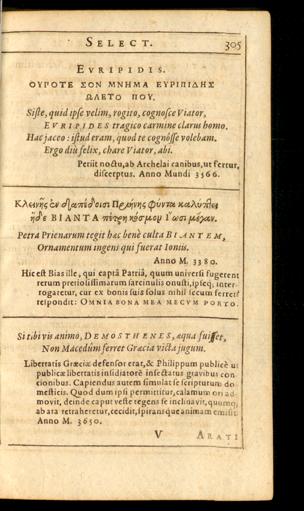 SELECT. 305
EVRIPIDIS.
ΟΥΡΟΤΕ ΣΟΝ ΜΝΗΜΑ ΕΥΡΙΠΙΔΗΣ
ΩΛΕΤΟ ΠΟΥ.
Siste, quid ipse velim, rogito, cognosce Viator,
EVRIPIDES tragico carmine clarus homo.
Hac jaceo: istud eram, quod te cognosse volebam.
Ergo diu felix, chare Viator, abi.
Periit noctu, ab Archelai canibus, ut fertur,
discerptus. Anno Mundi 3566.
Κλεινῆς ἐν δαπέδοισι Πριήνης φύντα καλύπτει
ἥδε ΒΙΑΝΤΑ πέτρη κόσμον Ἴωσι μέγαν.
Petra Prienarum tegit hac benè culta BIANTEM,
Ornamentum ingens qui fuerat Ioniis.
Anno M. 3380.
Hic est Bias ille, qui captâ Patriâ, quum universi fugerent
rerum pretiosissimarum sarcinulis onusti, ipseq; inter-
rogaretur, cur ex bonis suis solus nihil secum ferret?
respondit: OMNIA BONA MEA MECVM PORTO.
Si tibi vis animo, DEMOSTHENES, aqua fuisset,
Non Macedûm ferret Græcia victa jugum.
Libertatis Græciæ defensor erat, & Philippum publicè ut
publicæ libertatis insidiatorē insectatus gravibus con-
cionibus. Capiendus autem simulat se scripturum do-
mesticis. Quod dum ipsi permittitur, calamum ori ad-
movit, deinde caput veste tegens se inclinavit, quumq;
ab ara retraheretur, cecidit, spiransque animam emisit.
Anno M. 3650.
V ARATI